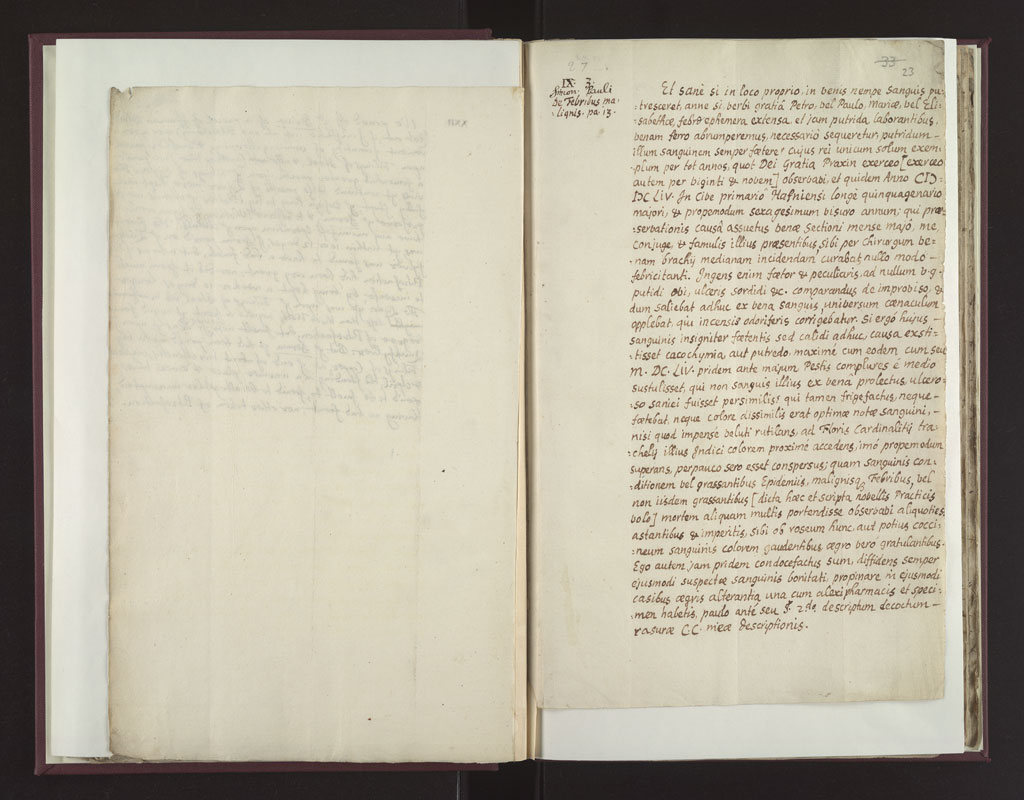 27
33
23
IX. 3.
Simon: Pauli
De Febribus ma:
:lignis. pa. 13.
Et sanè si in loco proprio, in venis nempe sanguis pu:
:tresceret, anne si verbi gratiâ Petro, vel Paulo, Mariæ, vel Eli:
:sabethæ, febre ephemera extensa, et jam putrida laborantibus,
venam ferro abrumperemus, necessariò sequeretur, putridum
illum sanguinem semper fœtere? cujus rei unicum solum exem:
:plum per tot annos, quot Dei Gratiâ Praxin exerceo [exerceo
autem per viginti & novem] observavi, et quidem Anno CIƆ.
IƆC LIV. In Cive primario Hafniensi longè quinquagenario
majori, & propemodum sexagesimum visuro annum; qui præ:
:servationis causâ assuetus venæ sectioni mense majo, me,
conjuge, & famulis illius præsentibus, sibi per Chirurgum ve:
:nam brachij medianam incidendam curabat, nullo modo
febricitanti. Ingens enim fœtor & peculiaris, ad nullum v.g.
putidi ovi, ulceris sordidi &c. comparandus de improviso, &
dum saliebat adhuc ex vena sanguis, universum cœnaculum
opplebat, qui incensis odoriferis corrigebatur. Si ergò hujus
sanguinis insigniter fœtentis sed calidi adhuc, causa exsti:
:tisset cacochymia, aut putredo, maximè cum eodem cum seu
M. DC. LIV. pridem ante majum Pestis complures è medio
sustulisset, qui non sanguis illius ex venâ prolectus, ulcero:
:so saniei fuisset persimilis? qui tamen frigefactus, neque
fœtebat, neque colore dissimilis erat optimæ notæ sanguini,
nisi quod impensè veluti rutilans, ad Floris Cardinalitij tra:
:chelij illius Indici colorem proximè accedens, imò propemodum
superans, perpauco sero esset conspersus; quam sanguinis con:
:ditionem vel grassantibus Epidemiis, malignisq; Febribus, vel
non iisdem grassantibus [dicta hæc et scripta novellis Practicis
volo] mortem aliquam multis portendisse observavi aliquoties,
astantibus & imperitis, sibi ob roseum hunc, aut potius cocci:
:neum sanguinis colorem gaudentibus, ægro verò gratulantibus.
Ego autem jam pridem condocefactus sum, diffidens semper
ejusmodi suspectæ sanguinis bonitati, propinare in ejusmodi
casibus ægris alterantia, una cum alexipharmacis et speci:
:men habetis, paulo ante seu §. 2do. descriptum decoctum
rasuræ C.C. meæ descriptionis.